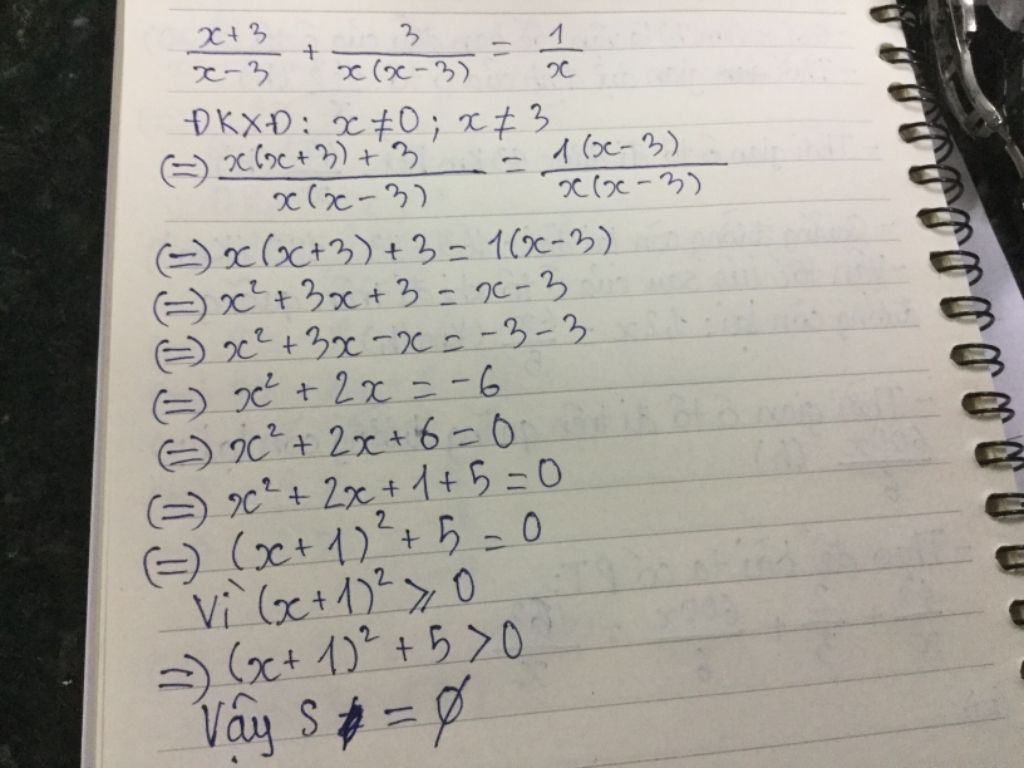 x+3/x-3 + 3/x(x-3) = 1/x
ĐKXĐ: x≠0; x≠3
(=) x(x+3)+3/x(x-3) = 1(x-3)/x(x-3)
(=) x(x+3)+3=1(x-3)
(=) x²+3x+3=x-3
(=) x²+3x-x=-3-3
(=) x²+2x=-6
(=) x²+2x+6=0
(=) x²+2x+1+5=0
(=) (x+1)²+5=0
Vì (x+1)²⩾0
=) (x+1)²+5>0
Vậy S = ∅